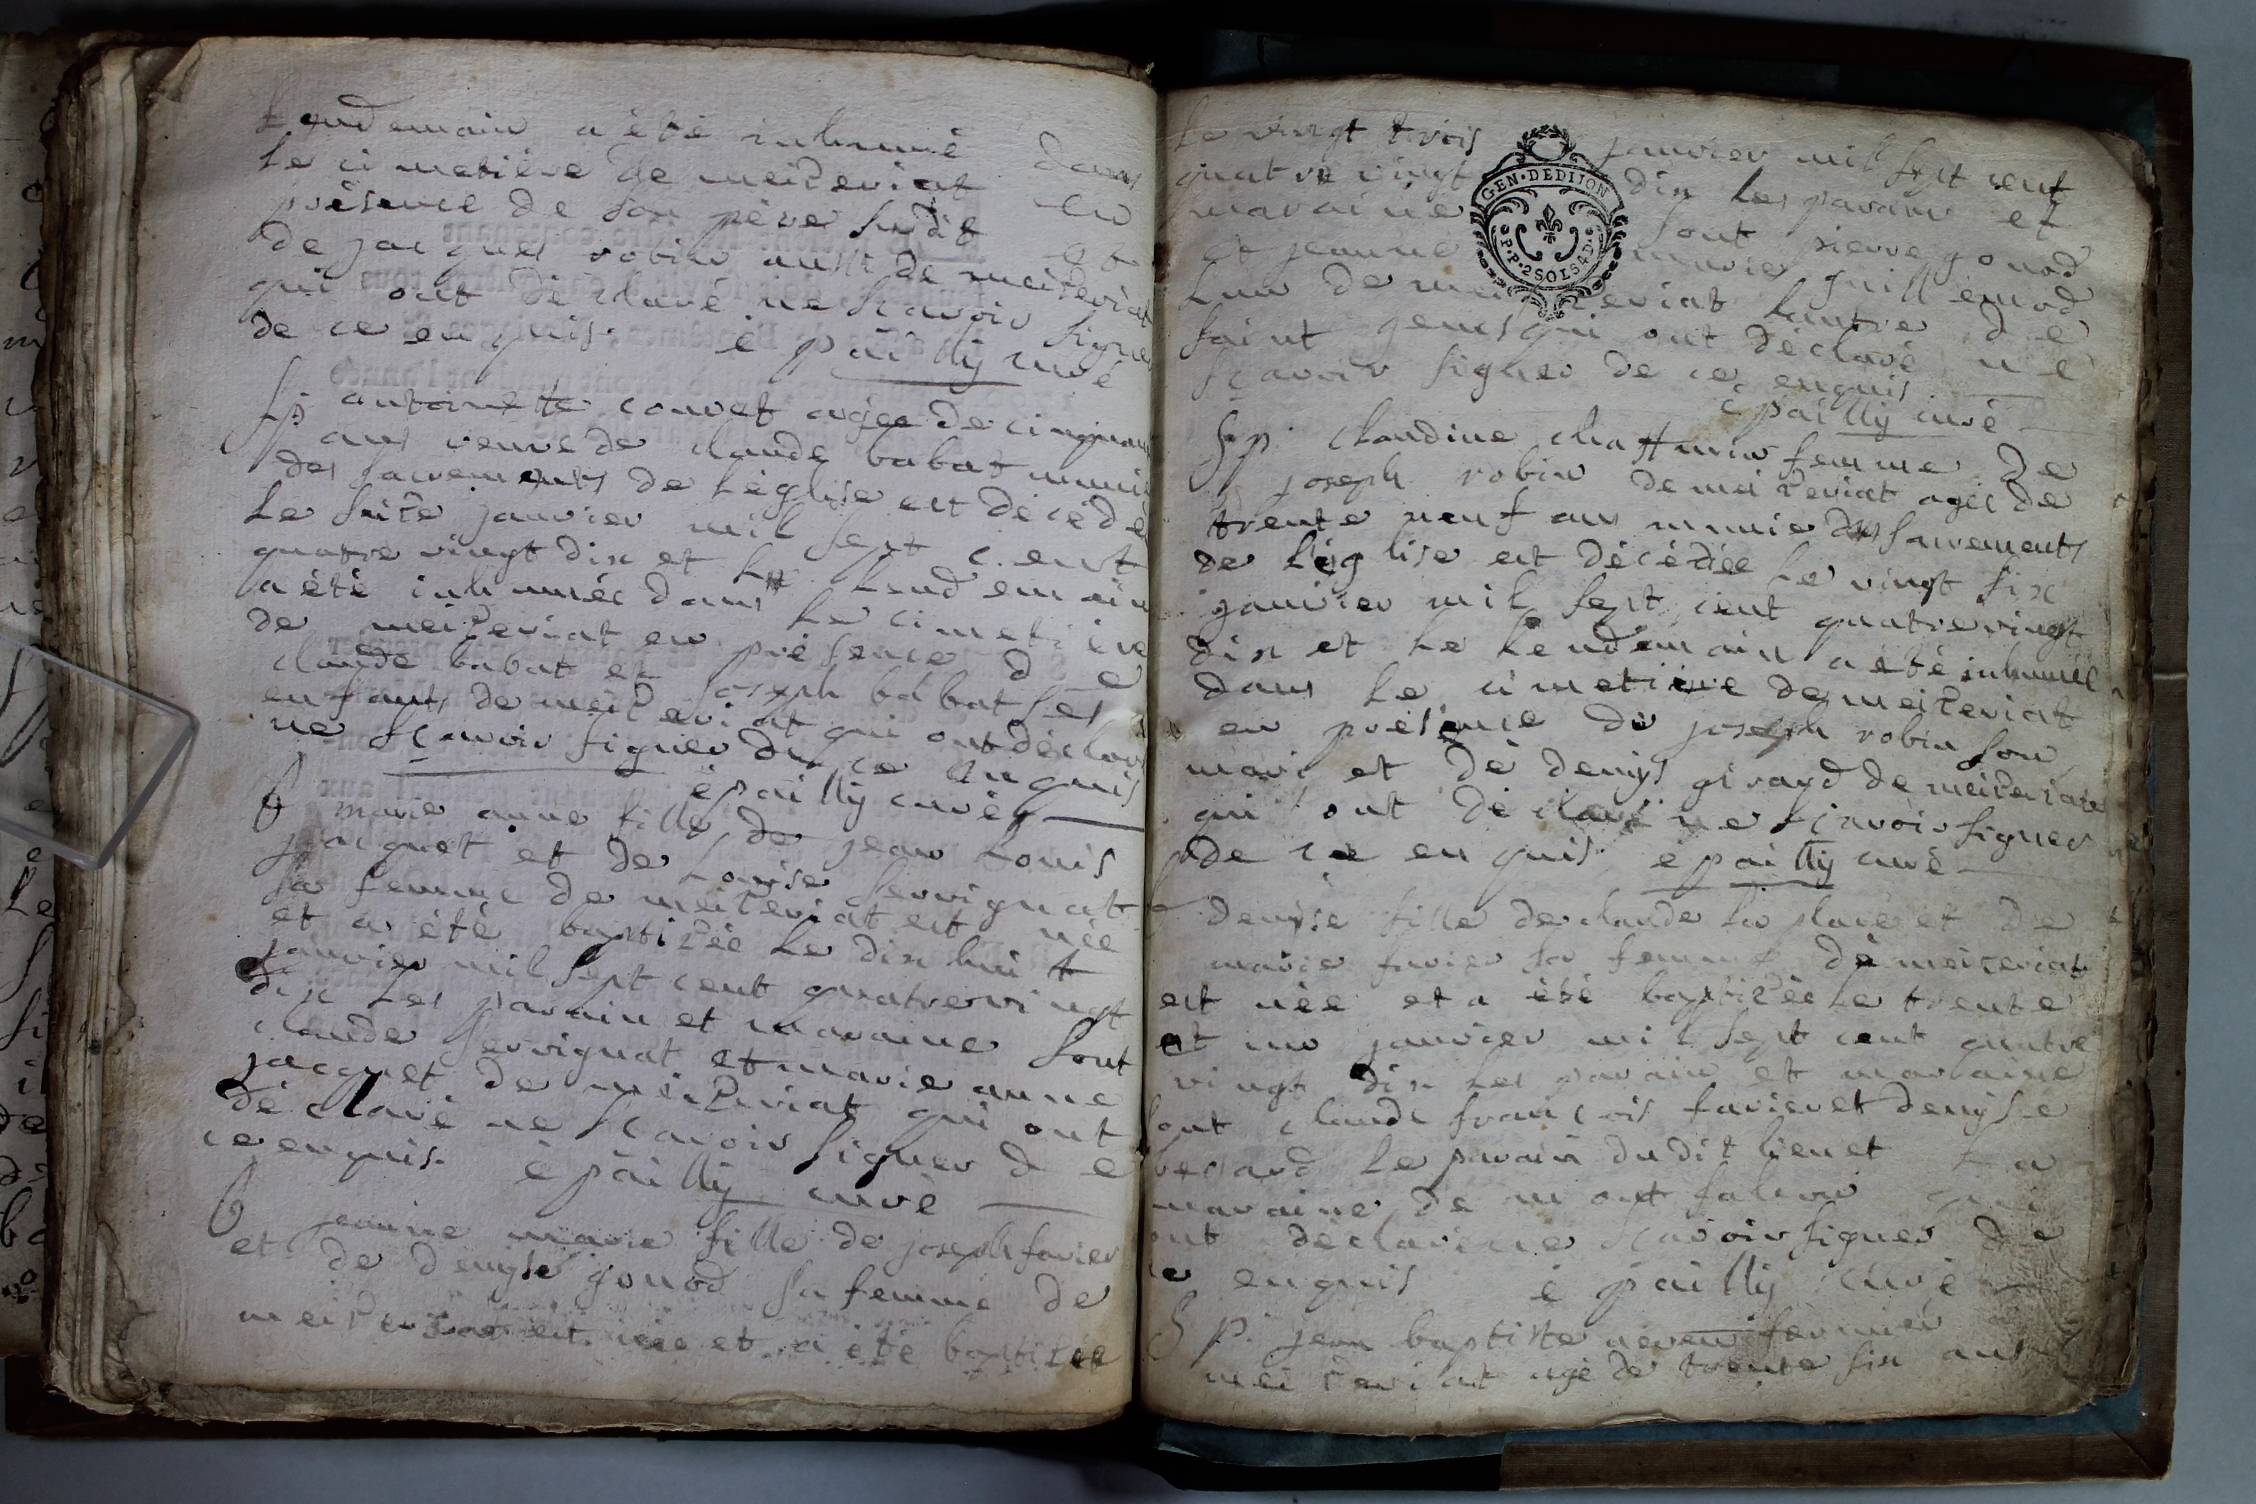 Lendemain a été inhumé dans
le cimetière de meizeriat en
présence de son père susdit et
de jacques robin aussi de meizeriat
qui ont déclaré ne scavoir signer
de ce enquis. é pailly curé
Sp antoinette convet agée de cinquante
ans veuve de claude babat munie
des sacrements de Leglise est décédé
le seize janvier mil sept cent
quatre vingt dix et le lendemain
a été inhumée dans le cimetière
de meizeriat en présence de
claude babat et joseph babat ses
enfants de meizeriat qui ont déclaré
ne scavoir signer de ce enquis
é pailly curé
B marie anne fille de jean Louis
jacquet et de Louise servignat
sa femme de meizeriat est née
et a été baptizée le dix huit
janvier mil sept cent quatrevingt
dix les parain et maraine sont
claude servignat et marie anne
jacquet de meizeriat qui ont
déclaré ne scavoir signer de
ce enquis. é pailly curé
B jeanne marie fille de joseph favier
et de denyse gonod sa femme de
meizeriat est née et a été baptizée
Le vingt trois janvier mil sept cent
quatre vingt dix les parain et
maraine sont pierre gonod
et jeanne marie guillemod
Lun de meizeriat Lautre de
saint genis qui ont déclaré ne
scavoir signer de ce enquis
é pailly curé
Sp. claudine femme de
joseph robin de meizeriat agée de
trente neuf ans munie des sacrements
de Léglise est décédée le vingt six
janvier mil sept cent quatrevingt
dix et le lendemain a été inhumée
dans le cimetière de meizeriat
en présence de joseph robin son
mari et de denys girard de meizeriat
qui ont déclaré ne scavoir signer
de ce enquis é pailly curé
denyse fille de claude La place et de
marie favier sa femme de meizeriat
est née et a été baptizée le trente
et un janvier mil sept cent quatre
vingt dix les parain et maraine
sont claude francois favier et denyse
le parain dudit lieu et La
maraine de mont falcon qui
ont déclaré ne scavoir signer de
ce enquis é pailly curé
Sp. jean baptiste fermier
meizeriat agé de trente six ans
GEN·DEDIJON
P.P·2SOLS4D·